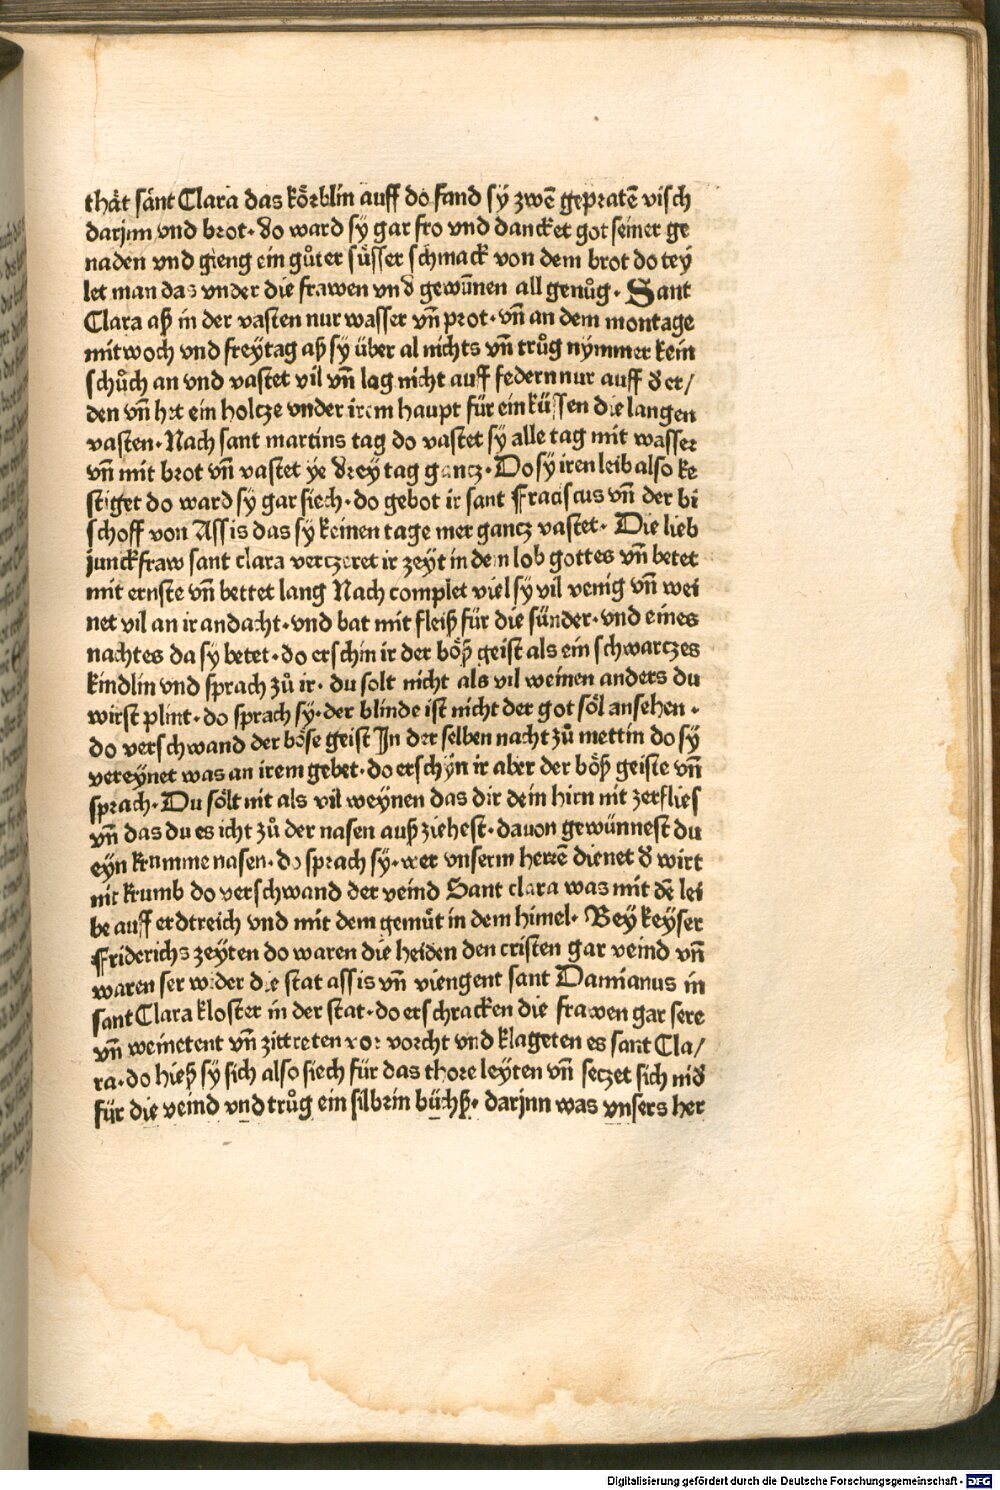 thåt sånt Clara das körblin auff do fand sÿ zwē gepratē visch
darjnn vnd brot · do ward sÿ gar fro vnd dancket got seiner ge
naden vnd gieng ein gůter süsser schmack von dem brot do tey
let man das vnder die frawen vnd gewünnen all genůg · Sant
Clara aß in der vasten nur wasser vñ prot · vñ an dem montage
mitwoch vnd freÿtag aß sÿ über al nichts vñ trůg nÿmmer kein
schůch an vnd vastet vil vñ lag nicht auff federn nur auff d̕ er/
den vñ het ein holtze vnder irem haupt für ein küssen die langen
vasten · Nach sant martins tag do vastet sÿ alle tag mit wasser
vñ mit brot vñ vastet ye dreÿ tag gantz · Do sÿ iren leib also ke
stiget do ward sÿ gar siech · do gebot ir sant Fraciscus vñ der bi
schoff von Assis das sÿ keinen tage mer gancz vastet · Die lieb
junckfraw sant clara verczeret ir zeÿt in dem lob gottes vñ betet
mit ernste vñ bettet lang Nach complet viel sÿ vil venig vñ wei
net vil an ir andacht · vnd bat mit fleiß für die sünder · vnd eines
nachtes da sÿ betet · do erschin ir der böß geist als ein schwarczes
kindlin vnd sprach zů ir · du solt nicht als vil weinen anders du
wirst plint · do sprach sÿ · der blinde ist nicht der got söl ansehen ·
do verschwand der böse geist In der selben nacht zů mettin do sÿ
vereÿnet was an irem gebet · do erschÿn ir aber der böß geiste vñ
sprach · Du sölt nit als vil weÿnen das dir dein hirn nit zerflies
vñ das du es icht zů der nasen auß ziehest · dauon gewünnest du
eÿn krumme nasen · do sprach sÿ · wer vnserm herrē dienet d̕ wirt
nit krumb do verschwand der veind Sant clara was mit dē lei
be auff erdtreich vnd mit dem gemüt in dem himel · Beÿ keÿser
Friderichs zeÿten do waren die heiden den cristen gar veind vñ
waren ser wider die stat assis vñ viengent sant Damianus in
sant Clara kloster in der stat · do erschracken die frawen gar sere
vñ weinetent vñ zittreten vor vorcht vnd klageten es sant Cla/
ra · do hieß sÿ sich also siech für das thore leÿten vñ seczet sich nid̕
für die veind vnd trůg ein silbrin büchß · darjnn was vnsers her
Digitalisierung gefördert durch die Deutsche Forschungsgemeinschaft - DFG